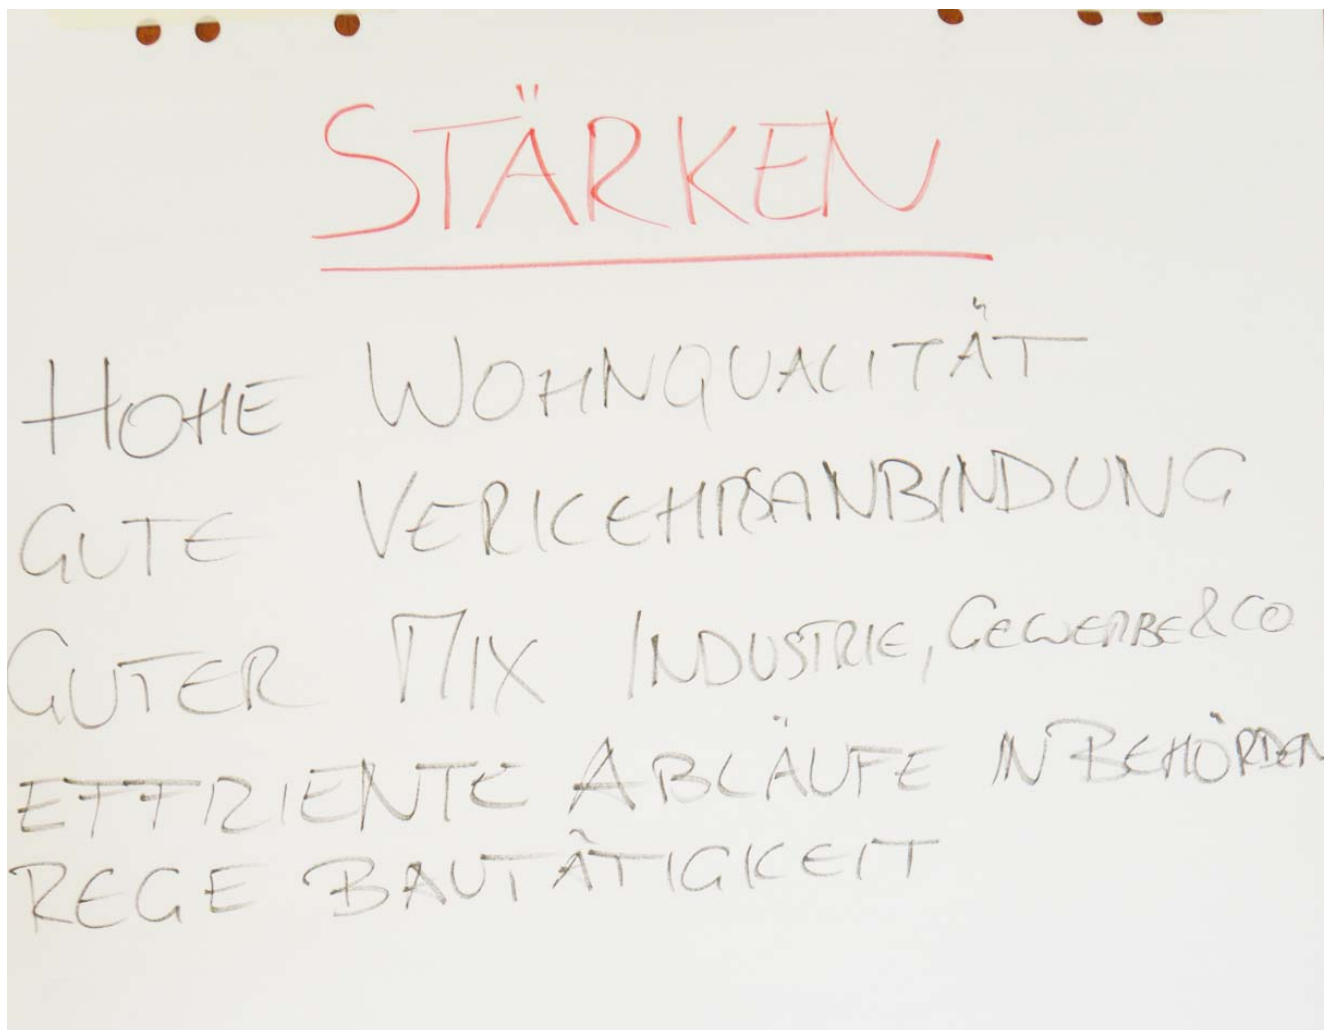 STÄRKEN
HOHE WOHNQUALITÄT
GUTE VERKEHRSANBINDUNG
GUTER MIX INDUSTRIE, GEWERBE & CO
EFFIZIENTE ABLÄUFE IN BEHÖRDEN
REGE BAUTÄTIGKEIT